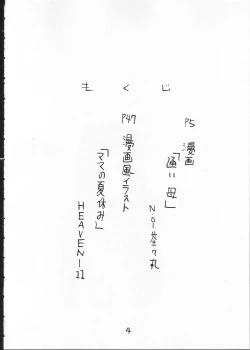 もくじ
P5
漫画
「通い母」
P47
漫画風イラスト
「ママの夏休み」
HEAVEN-11
4